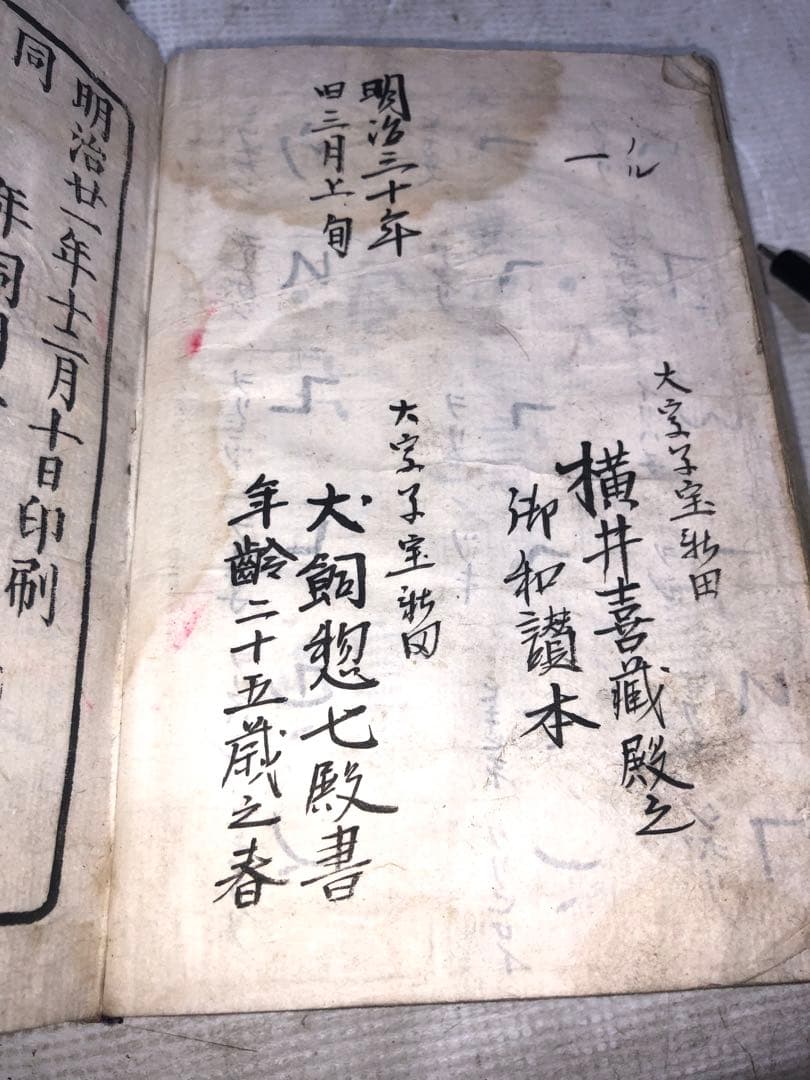 ノル
一
大字子宝新田
横井喜藏殿之
御和讃本
明治三十年
旧三月上旬
大字子宝新田
犬飼惣七殿書
年齢二十五歳之春
明治廿一年十二月十日印刷
同